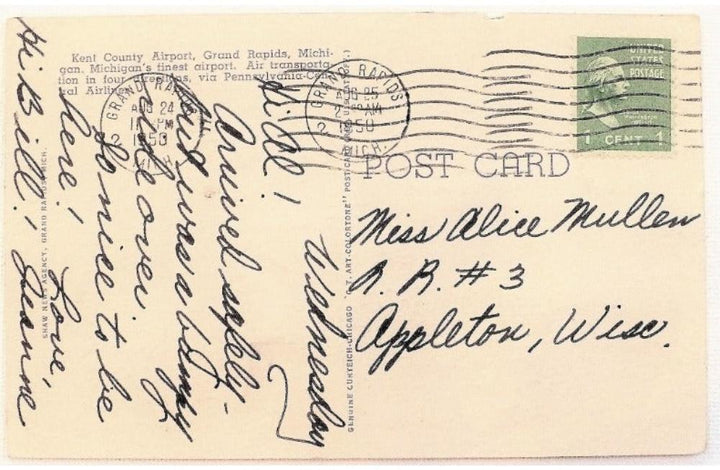 Kent County Airport, Grand Rapids, Michi-
gan. Michigan's finest airport. Air transporta-
tion in four directions, via Pennsylvania-Cen-
tral Airlines.
GRAND RAPIDS
AUG 24
PM
1950
MICH.
GRAND RAPIDS
AUG 25
AM
1950
MICH.
UNITED
STATES
POSTAGE
1 CENT 1
POST CARD
Wednesday
Hi Al!
Arrived safely-
but was a bumpy
ride over.
So nice to be
here!
Love,
Jeanne
Hi Bill!
Miss Alice Mullen
R. R. #3
Appleton, Wisc.
SHAW NEWS AGENCY, GRAND RAPIDS, MICH.
GENUINE CURTEICH-CHICAGO "C.T. ART-COLORTONE" POST CARD